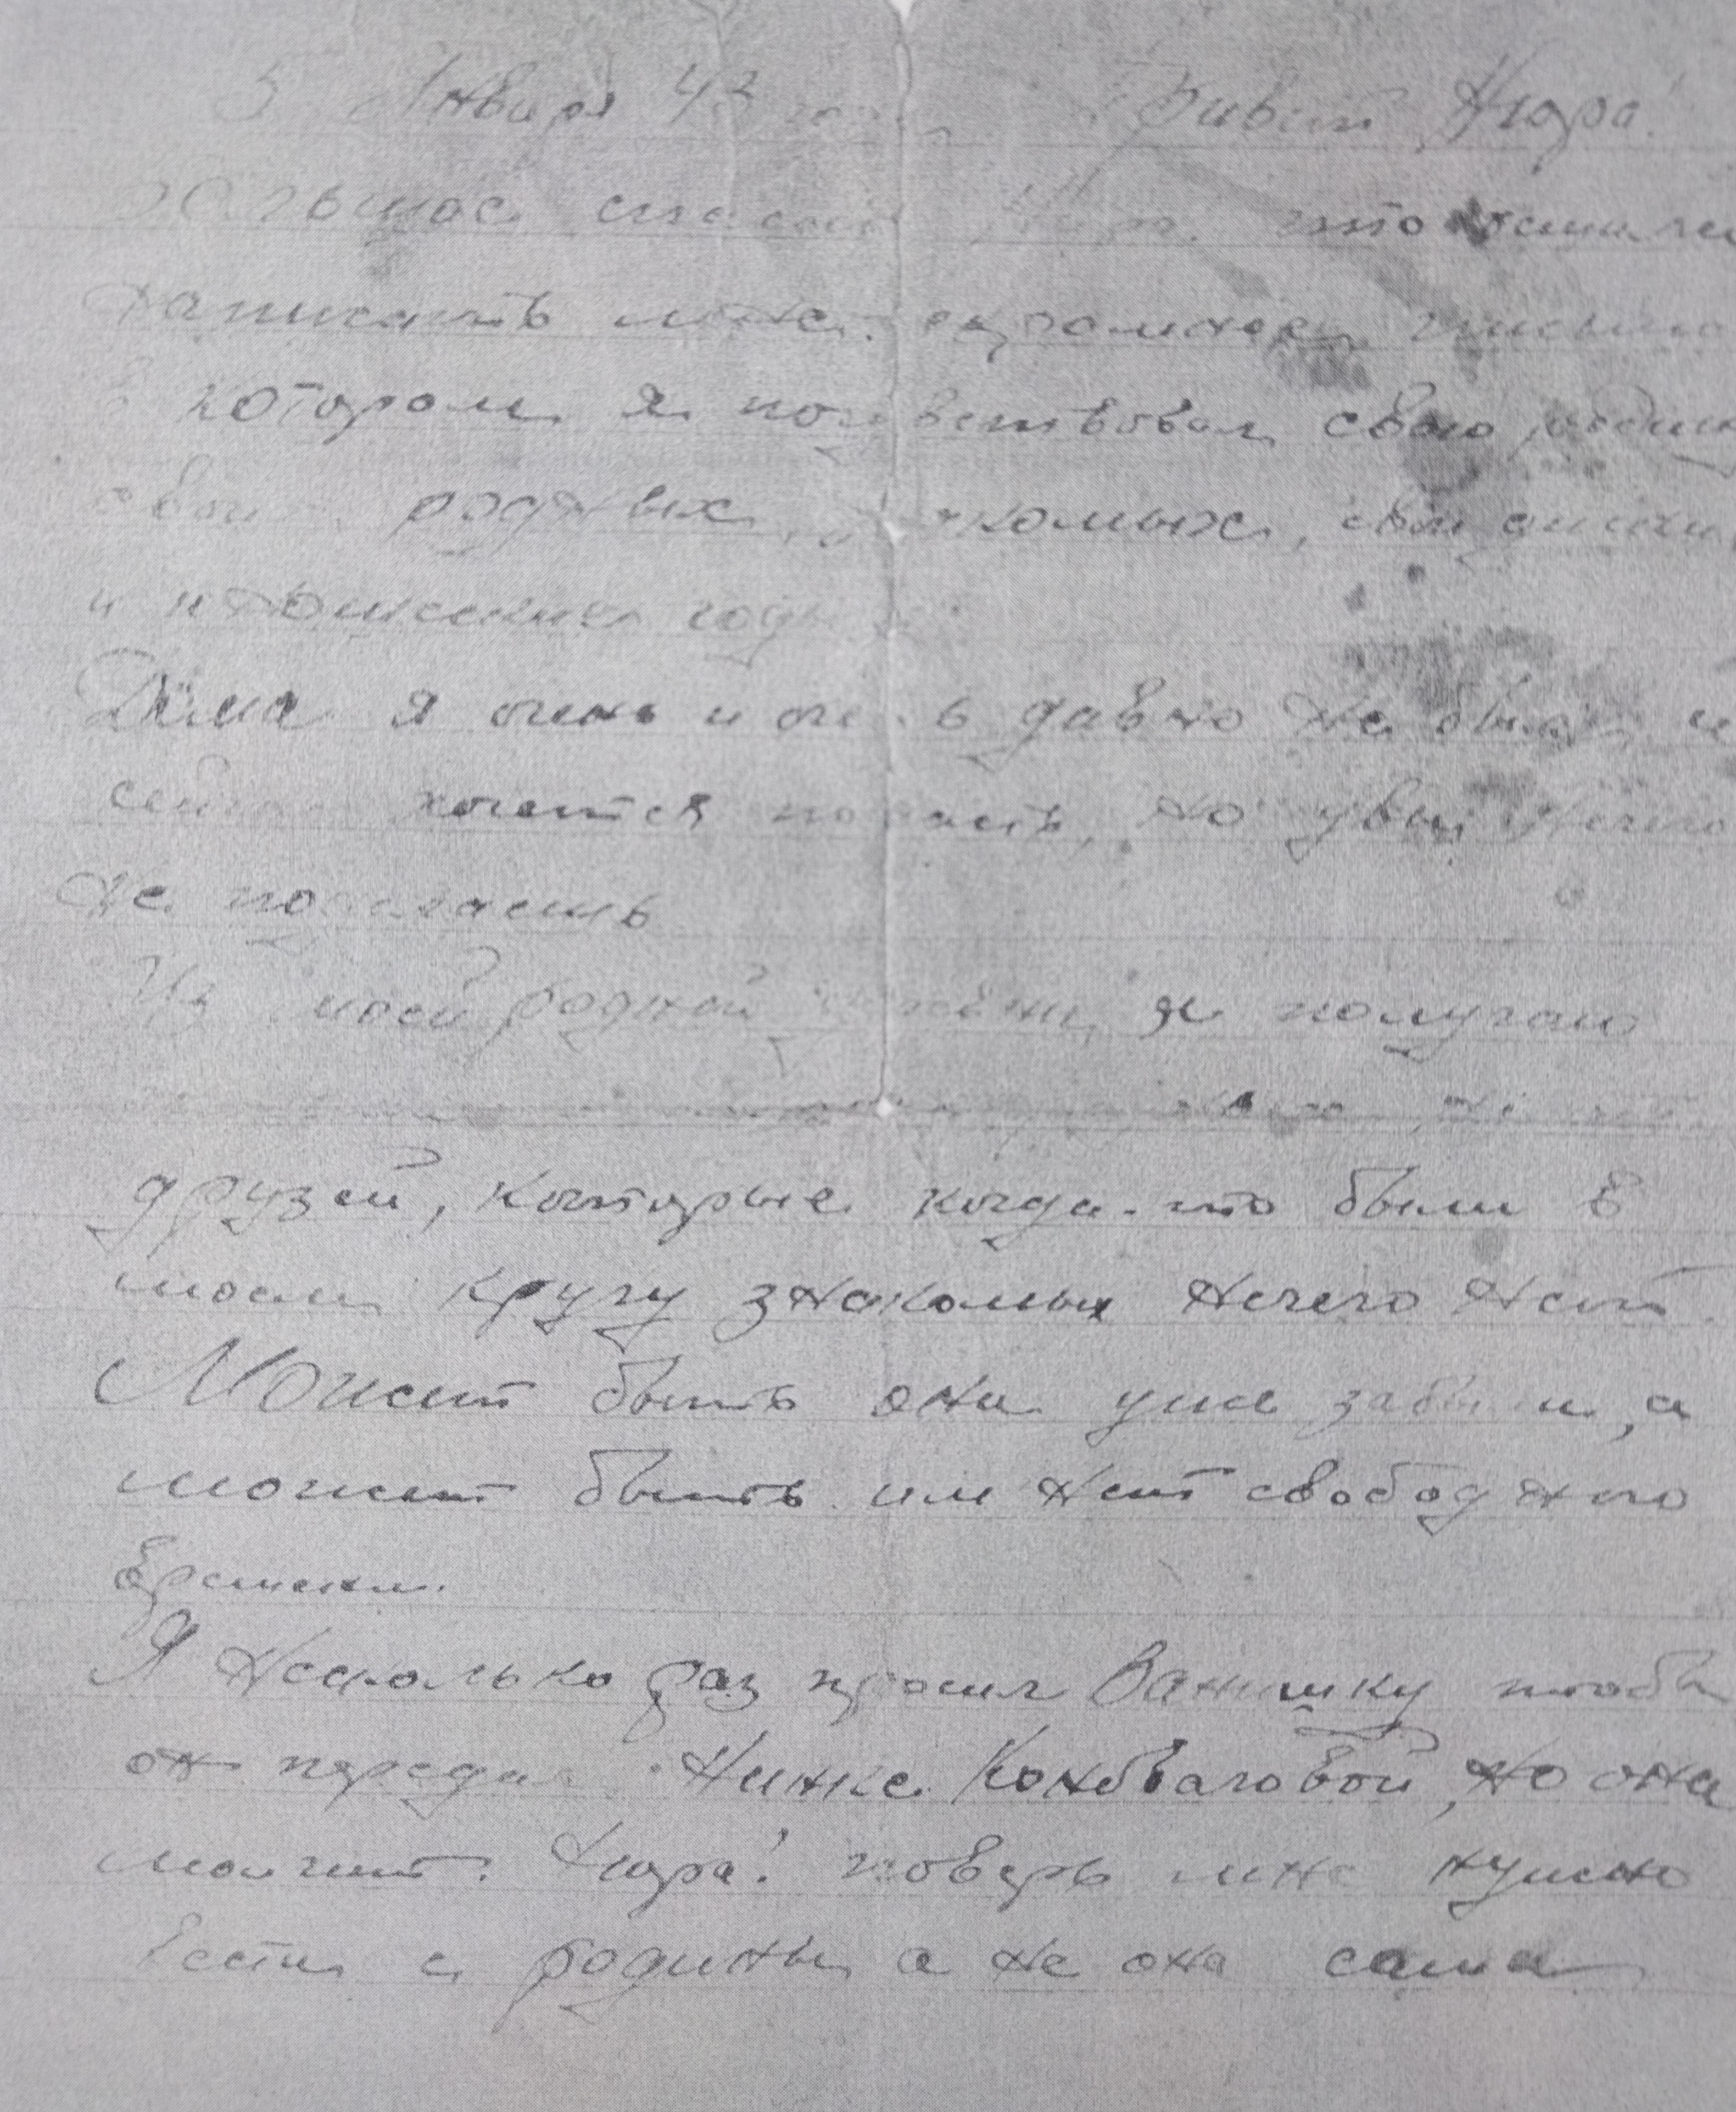 5 Января 43 Привет Нюра!
Большое спасибо что
написать мне скромное письмо
в котором я почувствовал свою родину
своих родных, знакомых, свои
и прошедшие годы
Дома я очень и очень давно не был, и
сейчас хочется попасть, но увы нечего
не поделаешь
Из моей родной я получаю
друзей, которые когда-то были в
моем кругу знакомых нечего нет
Может быть они уже забыли, а
может быть им нет свободного
времени.
Я несколько раз просил Ванюшку чтобы
он передал Нинке, но она
молчит. Нюра! поверь мне нужно
вести с родины а не она сама